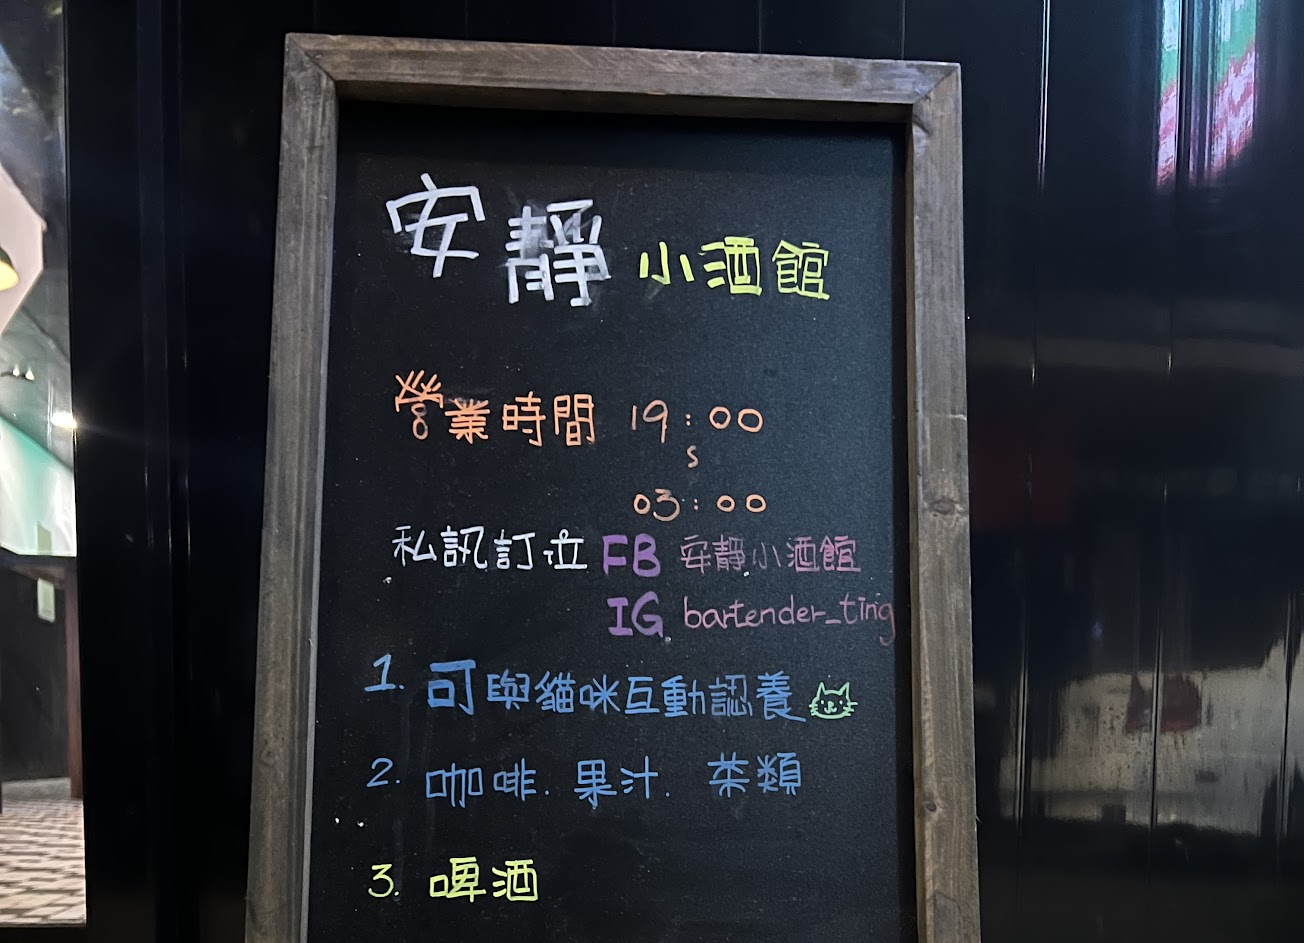 安靜小酒館
營業時間 19:00
s
03:00
私訊訂位 FB 安靜小酒館
IG bartender_ting
1. 可與貓咪互動認養
2. 咖啡. 果汁. 茶類
3. 啤酒